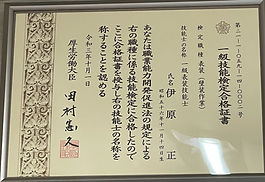 一級技能検定合格証書
検定職種 表装(壁装作業)
技能士の名称 一級表装技能士
氏名 伊原 正
昭和五十六年十一月十四日生
あなたは職業能力開発促進法の規定による
右の職種に係る技能検定に合格したので
ここに合格証書を授与し右の技能士の名称を
称することを認める
令和三年十月一日
厚生労働大臣
田村憲久